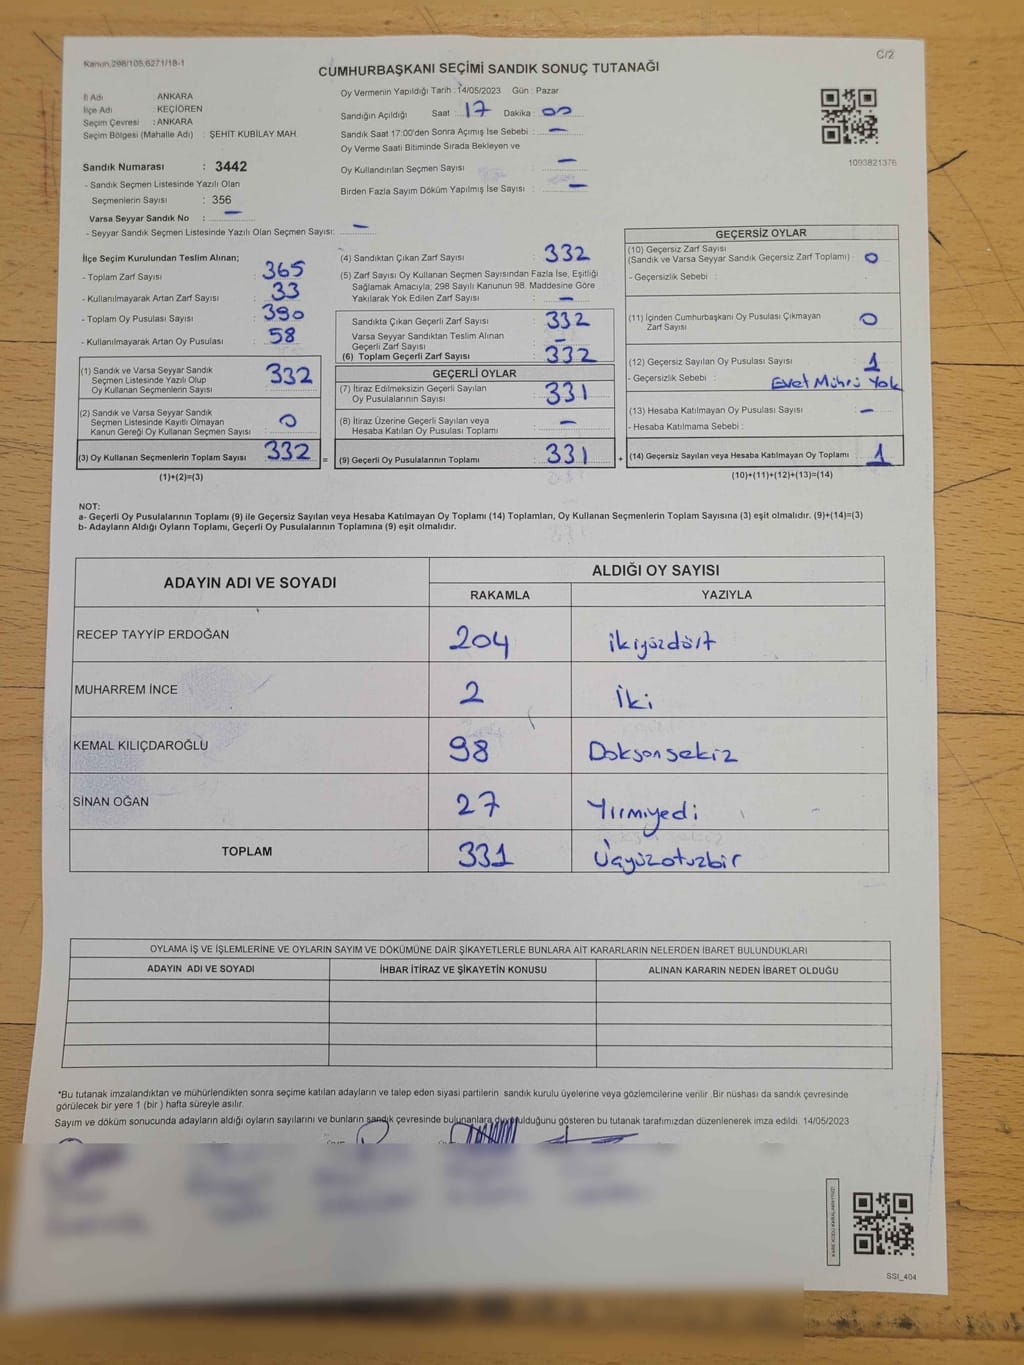 Kanun.298/105,6271/18-1
C/2
CUMHURBAŞKANI SEÇİMİ SANDIK SONUÇ TUTANAĞI
İl Adı ANKARA
İlçe Adı KEÇİÖREN
Seçim Çevresi : ANKARA
Seçim Bölgesi (Mahalle Adı) : ŞEHİT KUBİLAY MAH.
Sandık Numarası : 3442
- Sandık Seçmen Listesinde Yazılı Olan
Seçmenlerin Sayısı : 356
Varsa Seyyar Sandık No : —
- Seyyar Sandık Seçmen Listesinde Yazılı Olan Seçmen Sayısı: —
Oy Vermenin Yapıldığı Tarih : 14/05/2023 Gün : Pazar
Sandığın Açıldığı Saat : 17 Dakika : 00
Sandık Saat 17:00'den Sonra Açımış İse Sebebi : —
Oy Verme Saati Bitiminde Sırada Bekleyen ve
Oy Kullandırılan Seçmen Sayısı —
Birden Fazla Sayım Döküm Yapılmış İse Sayısı : —
1093821376
İlçe Seçim Kurulundan Teslim Alınan;
- Toplam Zarf Sayısı : 365
- Kullanılmayarak Artan Zarf Sayısı : 33
- Toplam Oy Pusulası Sayısı : 390
- Kullanılmayarak Artan Oy Pusulası : 58
(1) Sandık ve Varsa Seyyar Sandık
Seçmen Listesinde Yazılı Olup
Oy Kullanan Seçmenlerin Sayısı 332
(2) Sandık ve Varsa Seyyar Sandık
Seçmen Listesinde Kayıtlı Olmayan
Kanun Gereği Oy Kullanan Seçmen Sayısı 0
(3) Oy Kullanan Seçmenlerin Toplam Sayısı 332 =
(1)+(2)=(3)
(4) Sandıktan Çıkan Zarf Sayısı : 332
(5) Zarf Sayısı Oy Kullanan Seçmen Sayısından Fazla İse, Eşitliği
Sağlamak Amacıyla; 298 Sayılı Kanunun 98. Maddesine Göre
Yakılarak Yok Edilen Zarf Sayısı : —
Sandıkta Çıkan Geçerli Zarf Sayısı : 332
Varsa Seyyar Sandıktan Teslim Alınan
Geçerli Zarf Sayısı : —
(6) Toplam Geçerli Zarf Sayısı : 332
GEÇERLİ OYLAR
(7) İtiraz Edilmeksizin Geçerli Sayılan
Oy Pusulalarının Sayısı : 331
(8) İtiraz Üzerine Geçerli Sayılan veya
Hesaba Katılan Oy Pusulası Toplamı : —
(9) Geçerli Oy Pusulalarının Toplamı : 331 +
GEÇERSİZ OYLAR
(10) Geçersiz Zarf Sayısı
(Sandık ve Varsa Seyyar Sandık Geçersiz Zarf Toplamı) : 0
- Geçersizlik Sebebi :
(11) İçinden Cumhurbaşkanı Oy Pusulası Çıkmayan
Zarf Sayısı : 0
(12) Geçersiz Sayılan Oy Pusulası Sayısı : 1
- Geçersizlik Sebebi : Evet Mührü Yok
(13) Hesaba Katılmayan Oy Pusulası Sayısı : —
- Hesaba Katılmama Sebebi :
(14) Geçersiz Sayılan veya Hesaba Katılmayan Oy Toplamı : 1
(10)+(11)+(12)+(13)=(14)
NOT:
a- Geçerli Oy Pusulalarının Toplamı (9) ile Geçersiz Sayılan veya Hesaba Katılmayan Oy Toplamı (14) Toplamları, Oy Kullanan Seçmenlerin Toplam Sayısına (3) eşit olmalıdır. (9)+(14)=(3)
b- Adayların Aldığı Oyların Toplamı, Geçerli Oy Pusulalarının Toplamına (9) eşit olmalıdır.
ADAYIN ADI VE SOYADI
ALDIĞI OY SAYISI
RAKAMLA YAZIYLA
RECEP TAYYİP ERDOĞAN 204 ikiyüzdört
MUHARREM İNCE 2 İki
KEMAL KILIÇDAROĞLU 98 Doksansekiz
SİNAN OĞAN 27 Yirmiyedi
TOPLAM 331 Üçyüzotuzbir
OYLAMA İŞ VE İŞLEMLERİNE VE OYLARIN SAYIM VE DÖKÜMÜNE DAİR ŞİKAYETLERLE BUNLARA AİT KARARLARIN NELERDEN İBARET BULUNDUKLARI
ADAYIN ADI VE SOYADI İHBAR İTİRAZ VE ŞİKAYETİN KONUSU ALINAN KARARIN NEDEN İBARET OLDUĞU
*Bu tutanak imzalandıktan ve mühürlendikten sonra seçime katılan adayların ve talep eden siyasi partilerin sandık kurulu üyelerine veya gözlemcilerine verilir. Bir nüshası da sandık çevresinde
görülecek bir yere 1 (bir) hafta süreyle asılır.
Sayım ve döküm sonucunda adayların aldığı oyların sayılarını ve bunların sandık çevresinde bulunanlara duyurulduğunu gösteren bu tutanak tarafımızdan düzenlenerek imza edildi. 14/05/2023
SSI_404